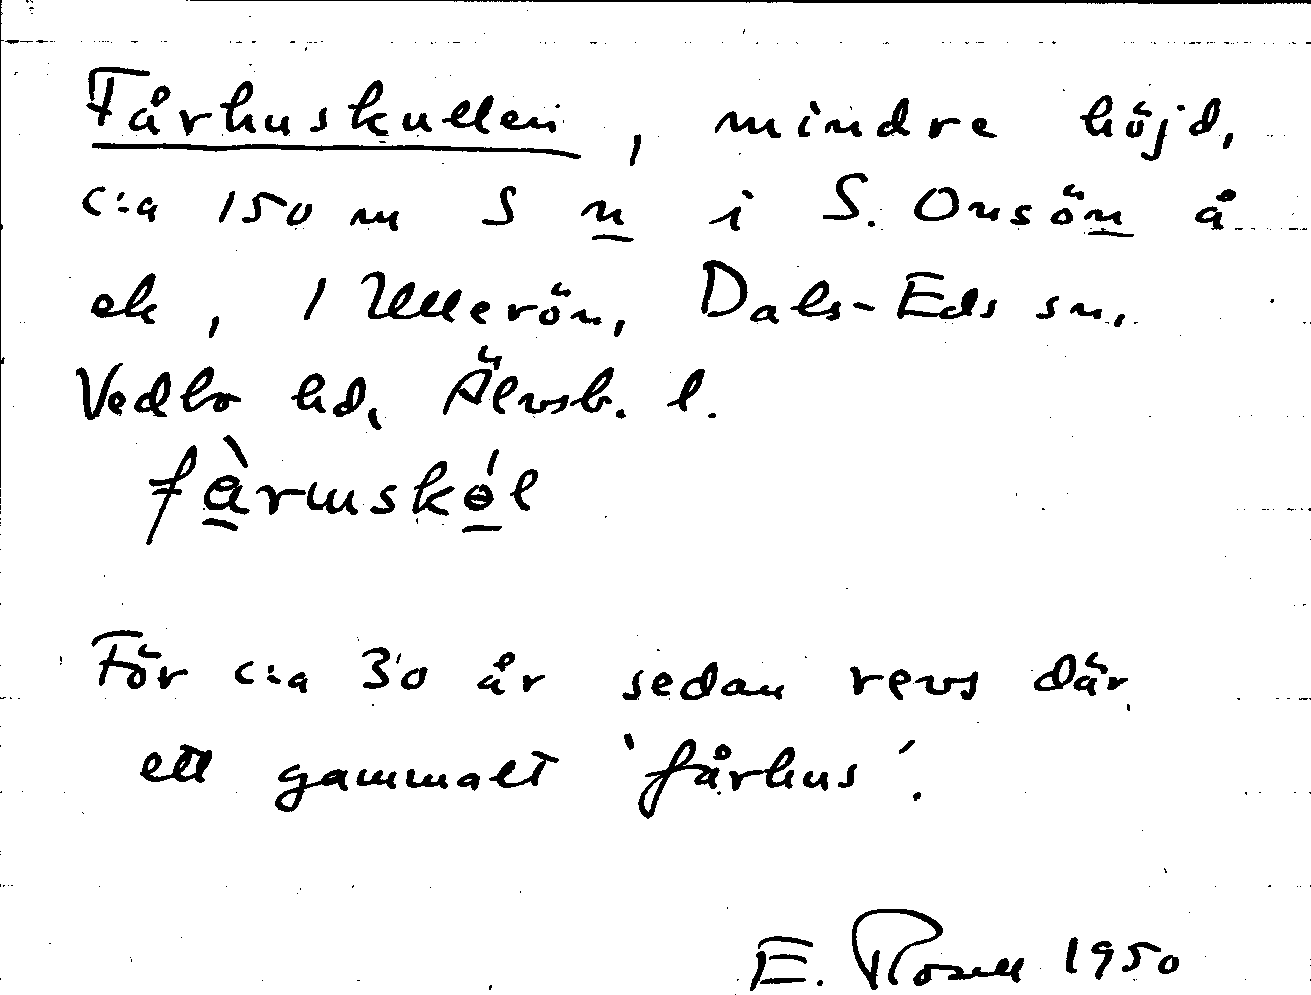 Fårhuskullen, mindre höjd,
c:a 150 m S n i S. Onsön å
ek, 1 Ullerön, Dals-Eds sn,
Vedbo hd, Älvsb. l.
För c:a 30 år sedan revs där
ett gammalt 'fårhus'.
E. Rosell 1950